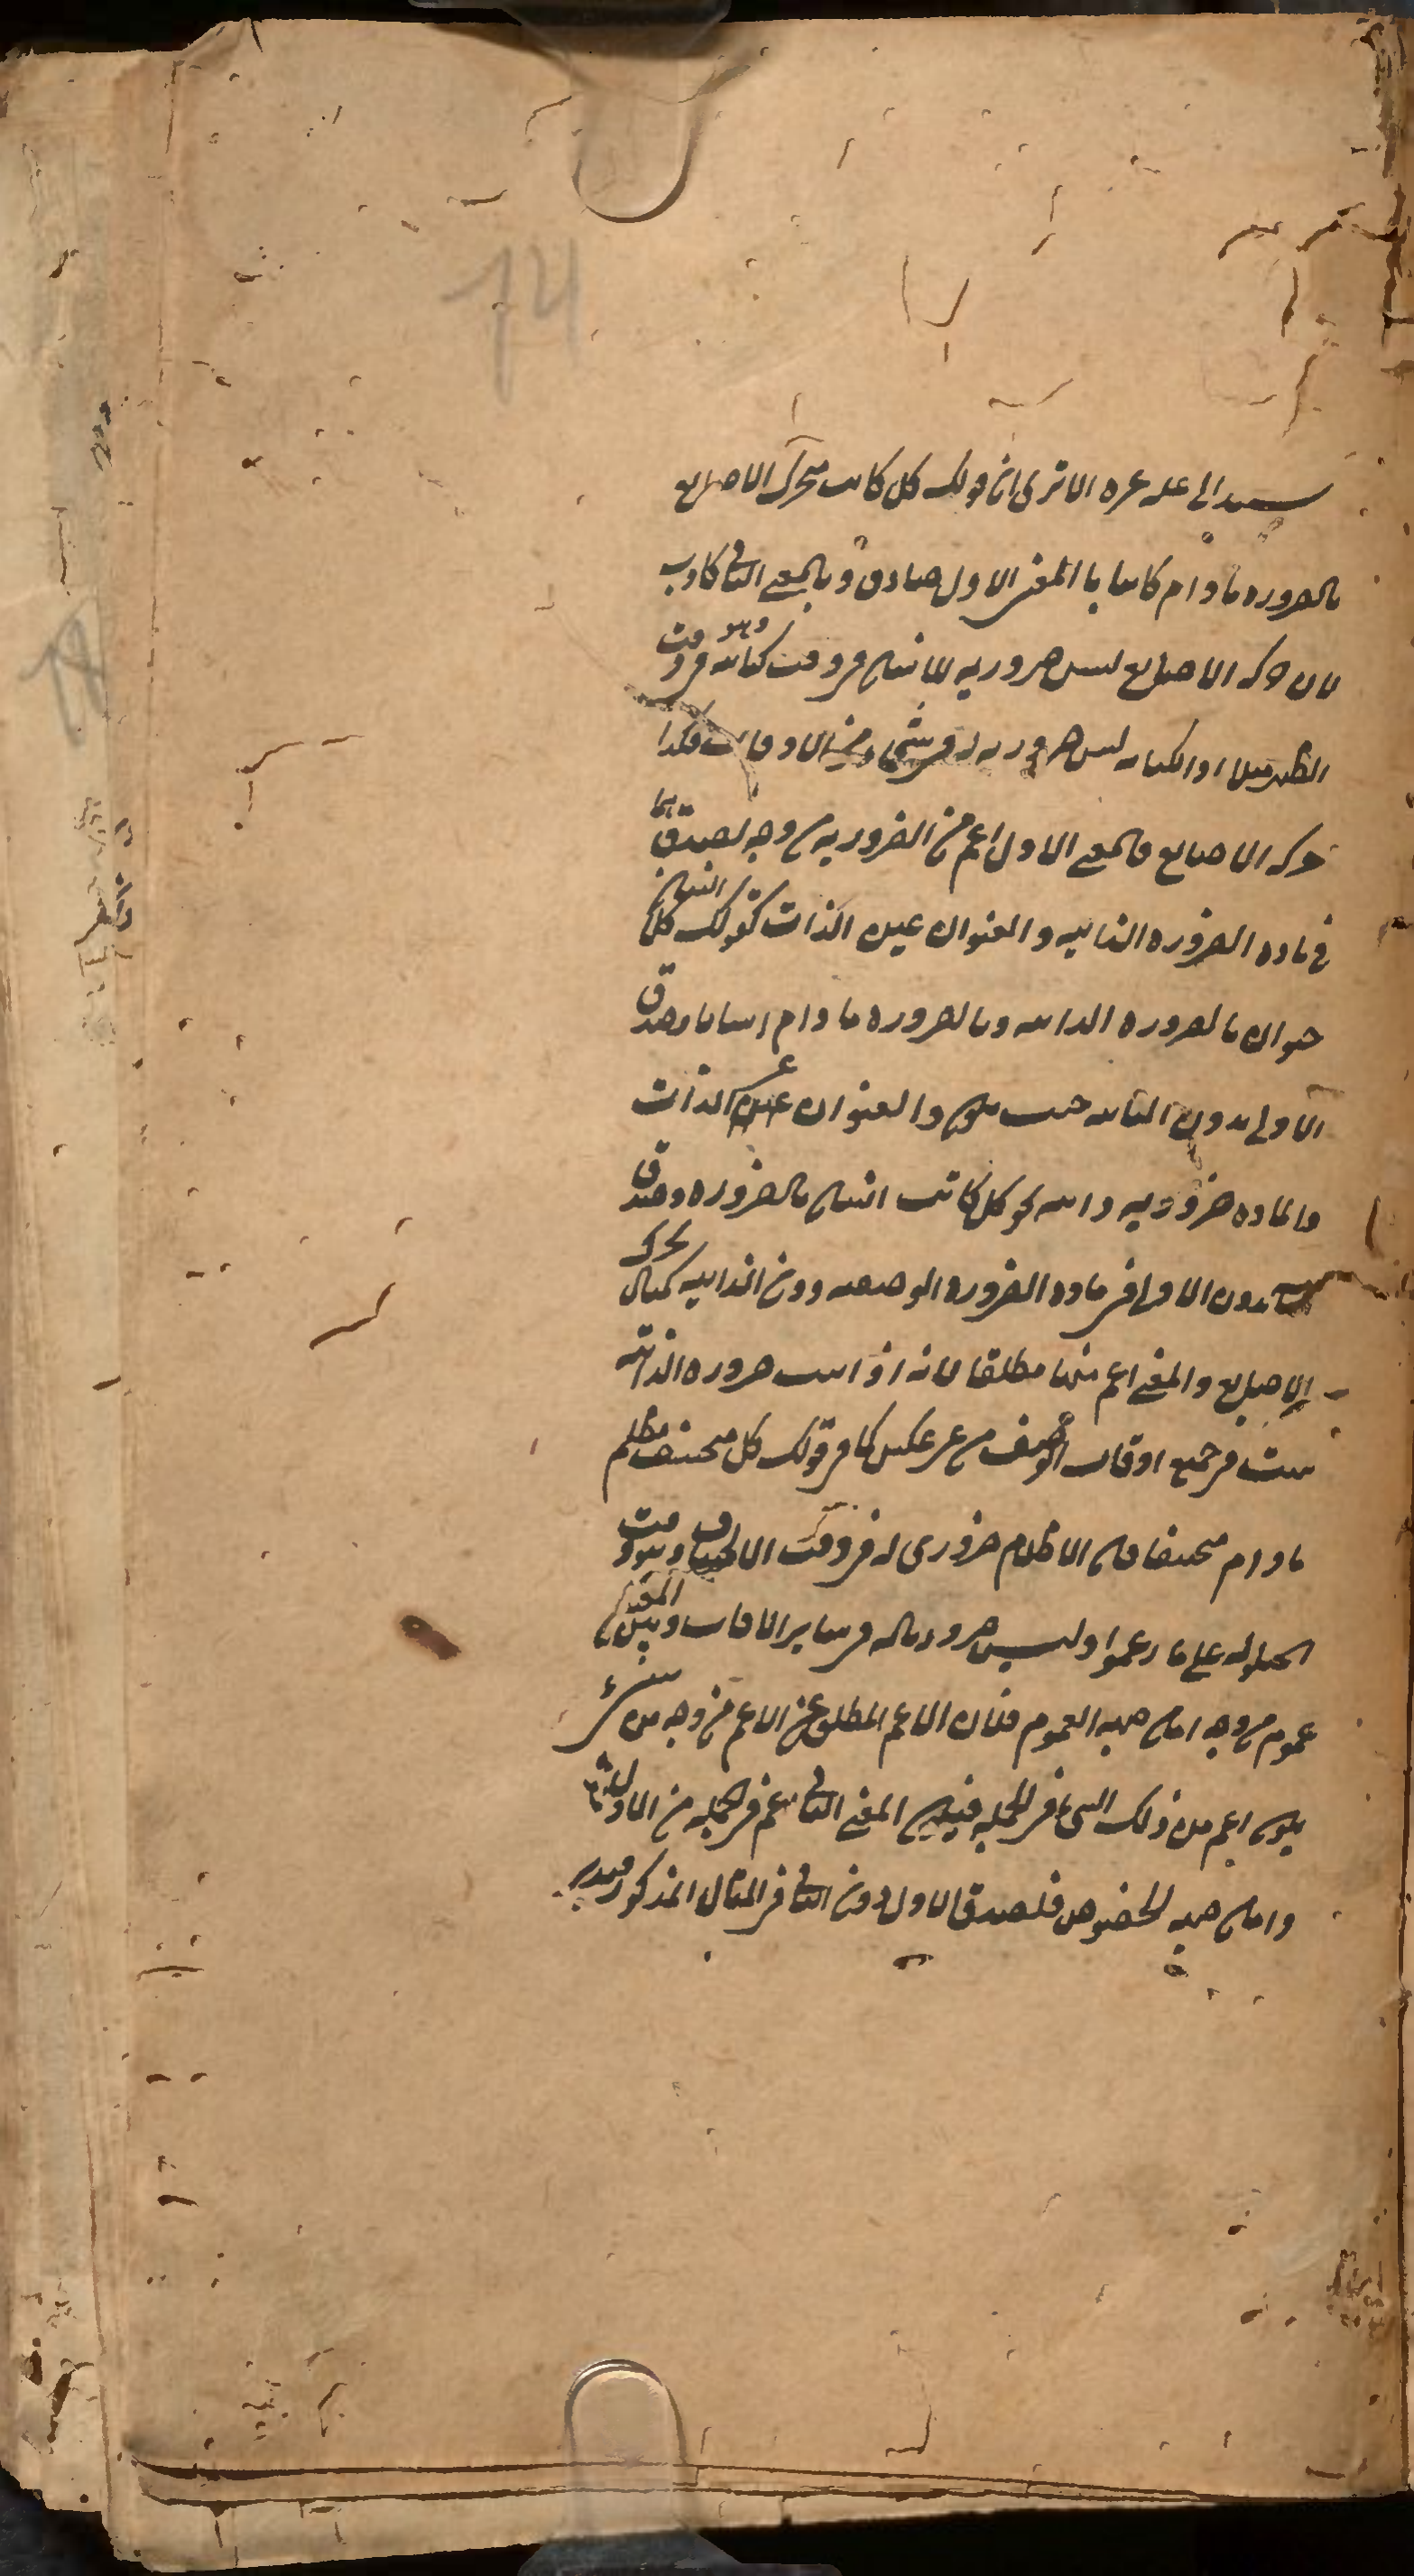 14
يستند الى علة غيره الا ترى ان قولك كل كاتب متحرك الاصابع
بالضرورة ما دام كاتبا با المعنى الاول صادق و بالمعنى الثانى كاذب
لان حركة الاصابع ليس ضرورية للانسان فى وقت كتابته وهو وقت
الظهر مثلا اذ الكتابة ليس ضرورية له فى شىء من الاوقات فكذا
حركة الاصابع فالمعنى الاول اعم من الضرورية من وجه لصدقهما
فى مادة الضرورة الذاتية و العنوان عين الذات كقولك كل انسان
حيوان بالضرورة الذاتية و بالضرورة ما دام انسانا وصدق
الاولى بدون الثانية حيث يكون و العنوان غير الذات
والمادة ضرورية ذاتية نحو كل كاتب انسان بالضرورة وصدق
بدون الاولى فى مادة الضرورة الوصفية دون الذاتية كمثال تحرك
الاصابع والمعنى اعم منها مطلقا لانه اذا ثبت ضرورة الذاتية
ثبت فى جميع اوقات الوصف من غير عكس كما فى قولك كل منخسف مظلم
ما دام منخسفا فان الاظلام ضرورى له فى وقت الانخساف وهو وقت
الحيلولة على ما زعموا وليس ضروريا له فى ساير الاوقات وبين المعنيين
عموم من وجه اما من جهة العموم فلان الاعم المطلق من الاعم من وجه من شىء
يكون اعم من ذلك الشىء فى الجملة فيكون المعنى الثانى اعم فى الجملة من الاول
واما من جهة الخصوص فلصدق الاول دون الثانى فى المثال المذكور فتدبر